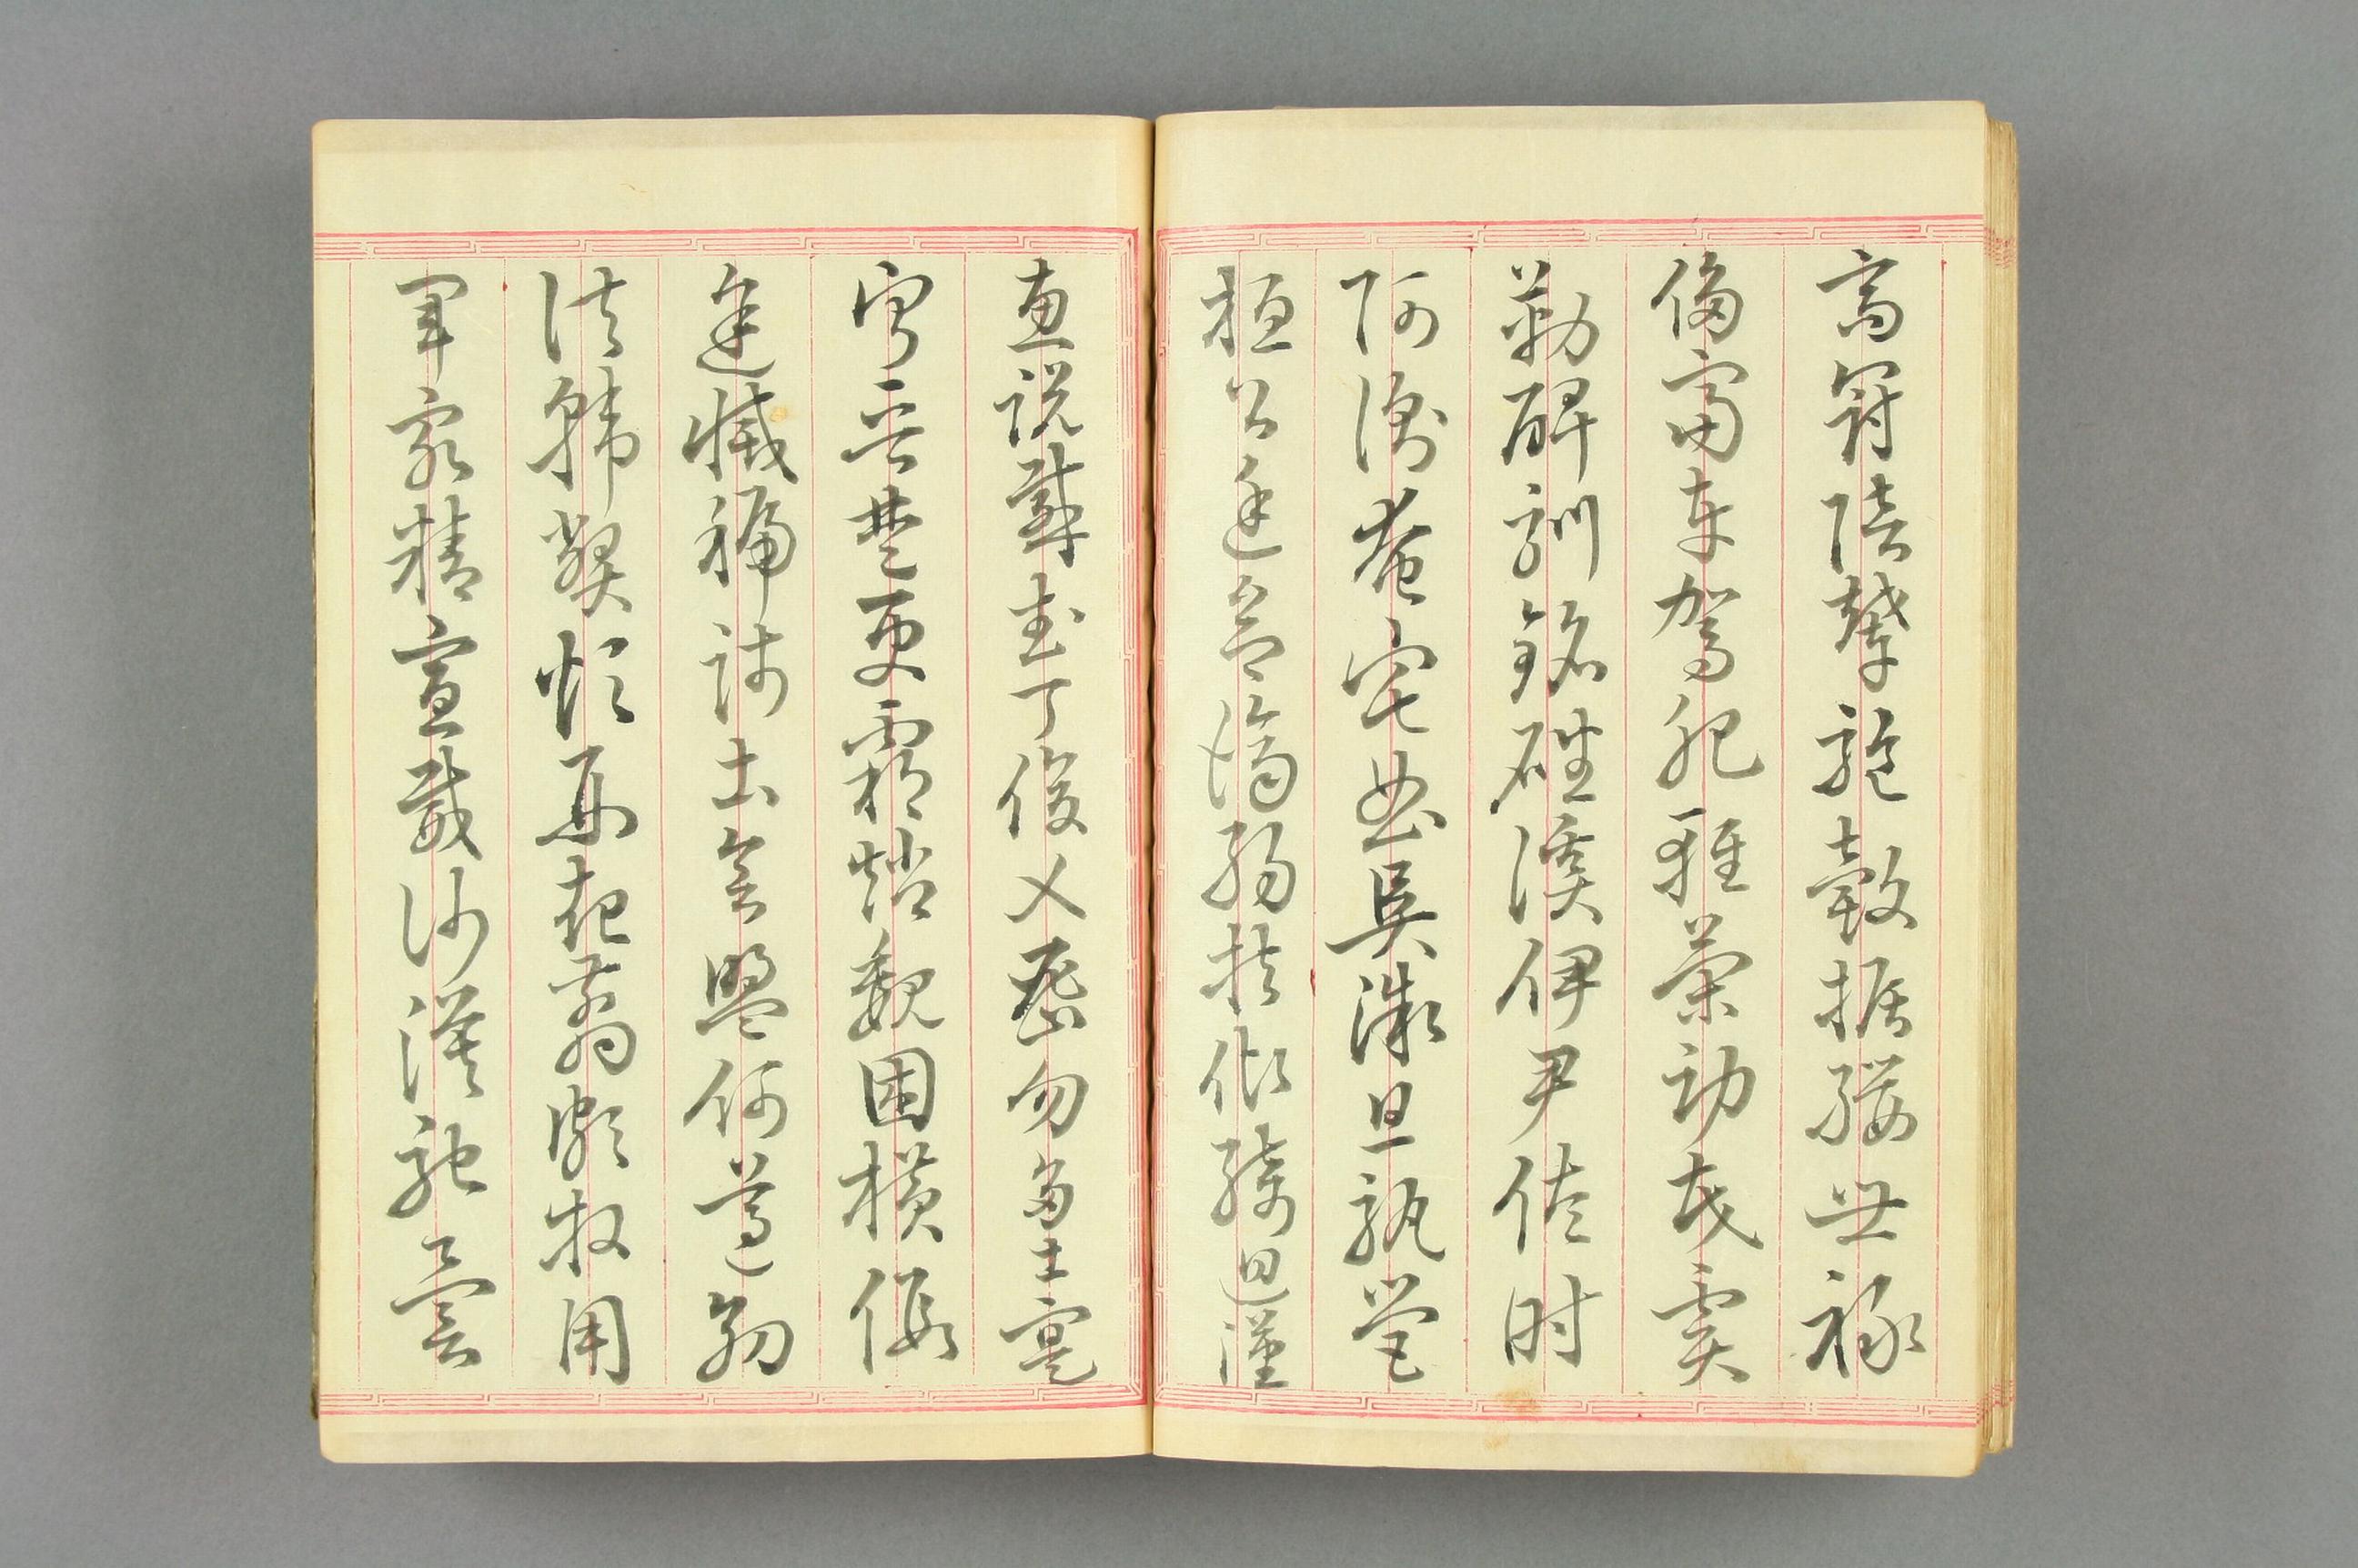 高冠陪輦驅轂振纓世祿
侈富車駕肥輕策功茂實
勒碑刻銘磻溪伊尹佐時
阿衡奄宅曲阜微旦孰營
桓公匡合濟弱扶傾綺迴漢
惠說感武丁俊乂密勿多士寔
寧晉楚更霸趙魏困橫假
途滅虢踐土會盟何遵約
法韓弊煩刑起翦頗牧用
軍最精宣威沙漠馳譽